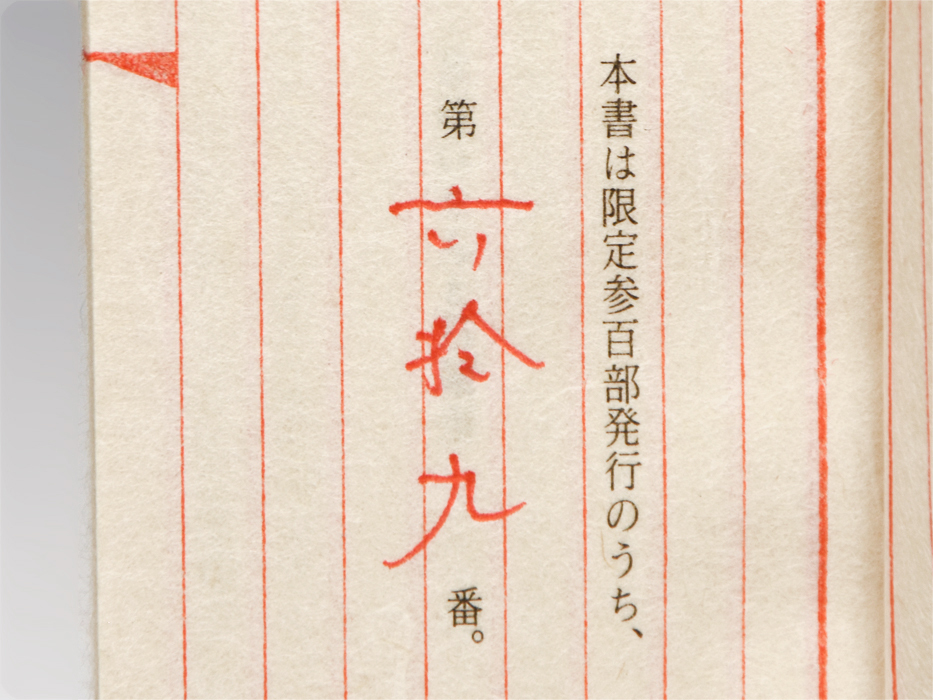 本書は限定参百部発行のうち、
第六拾九番。